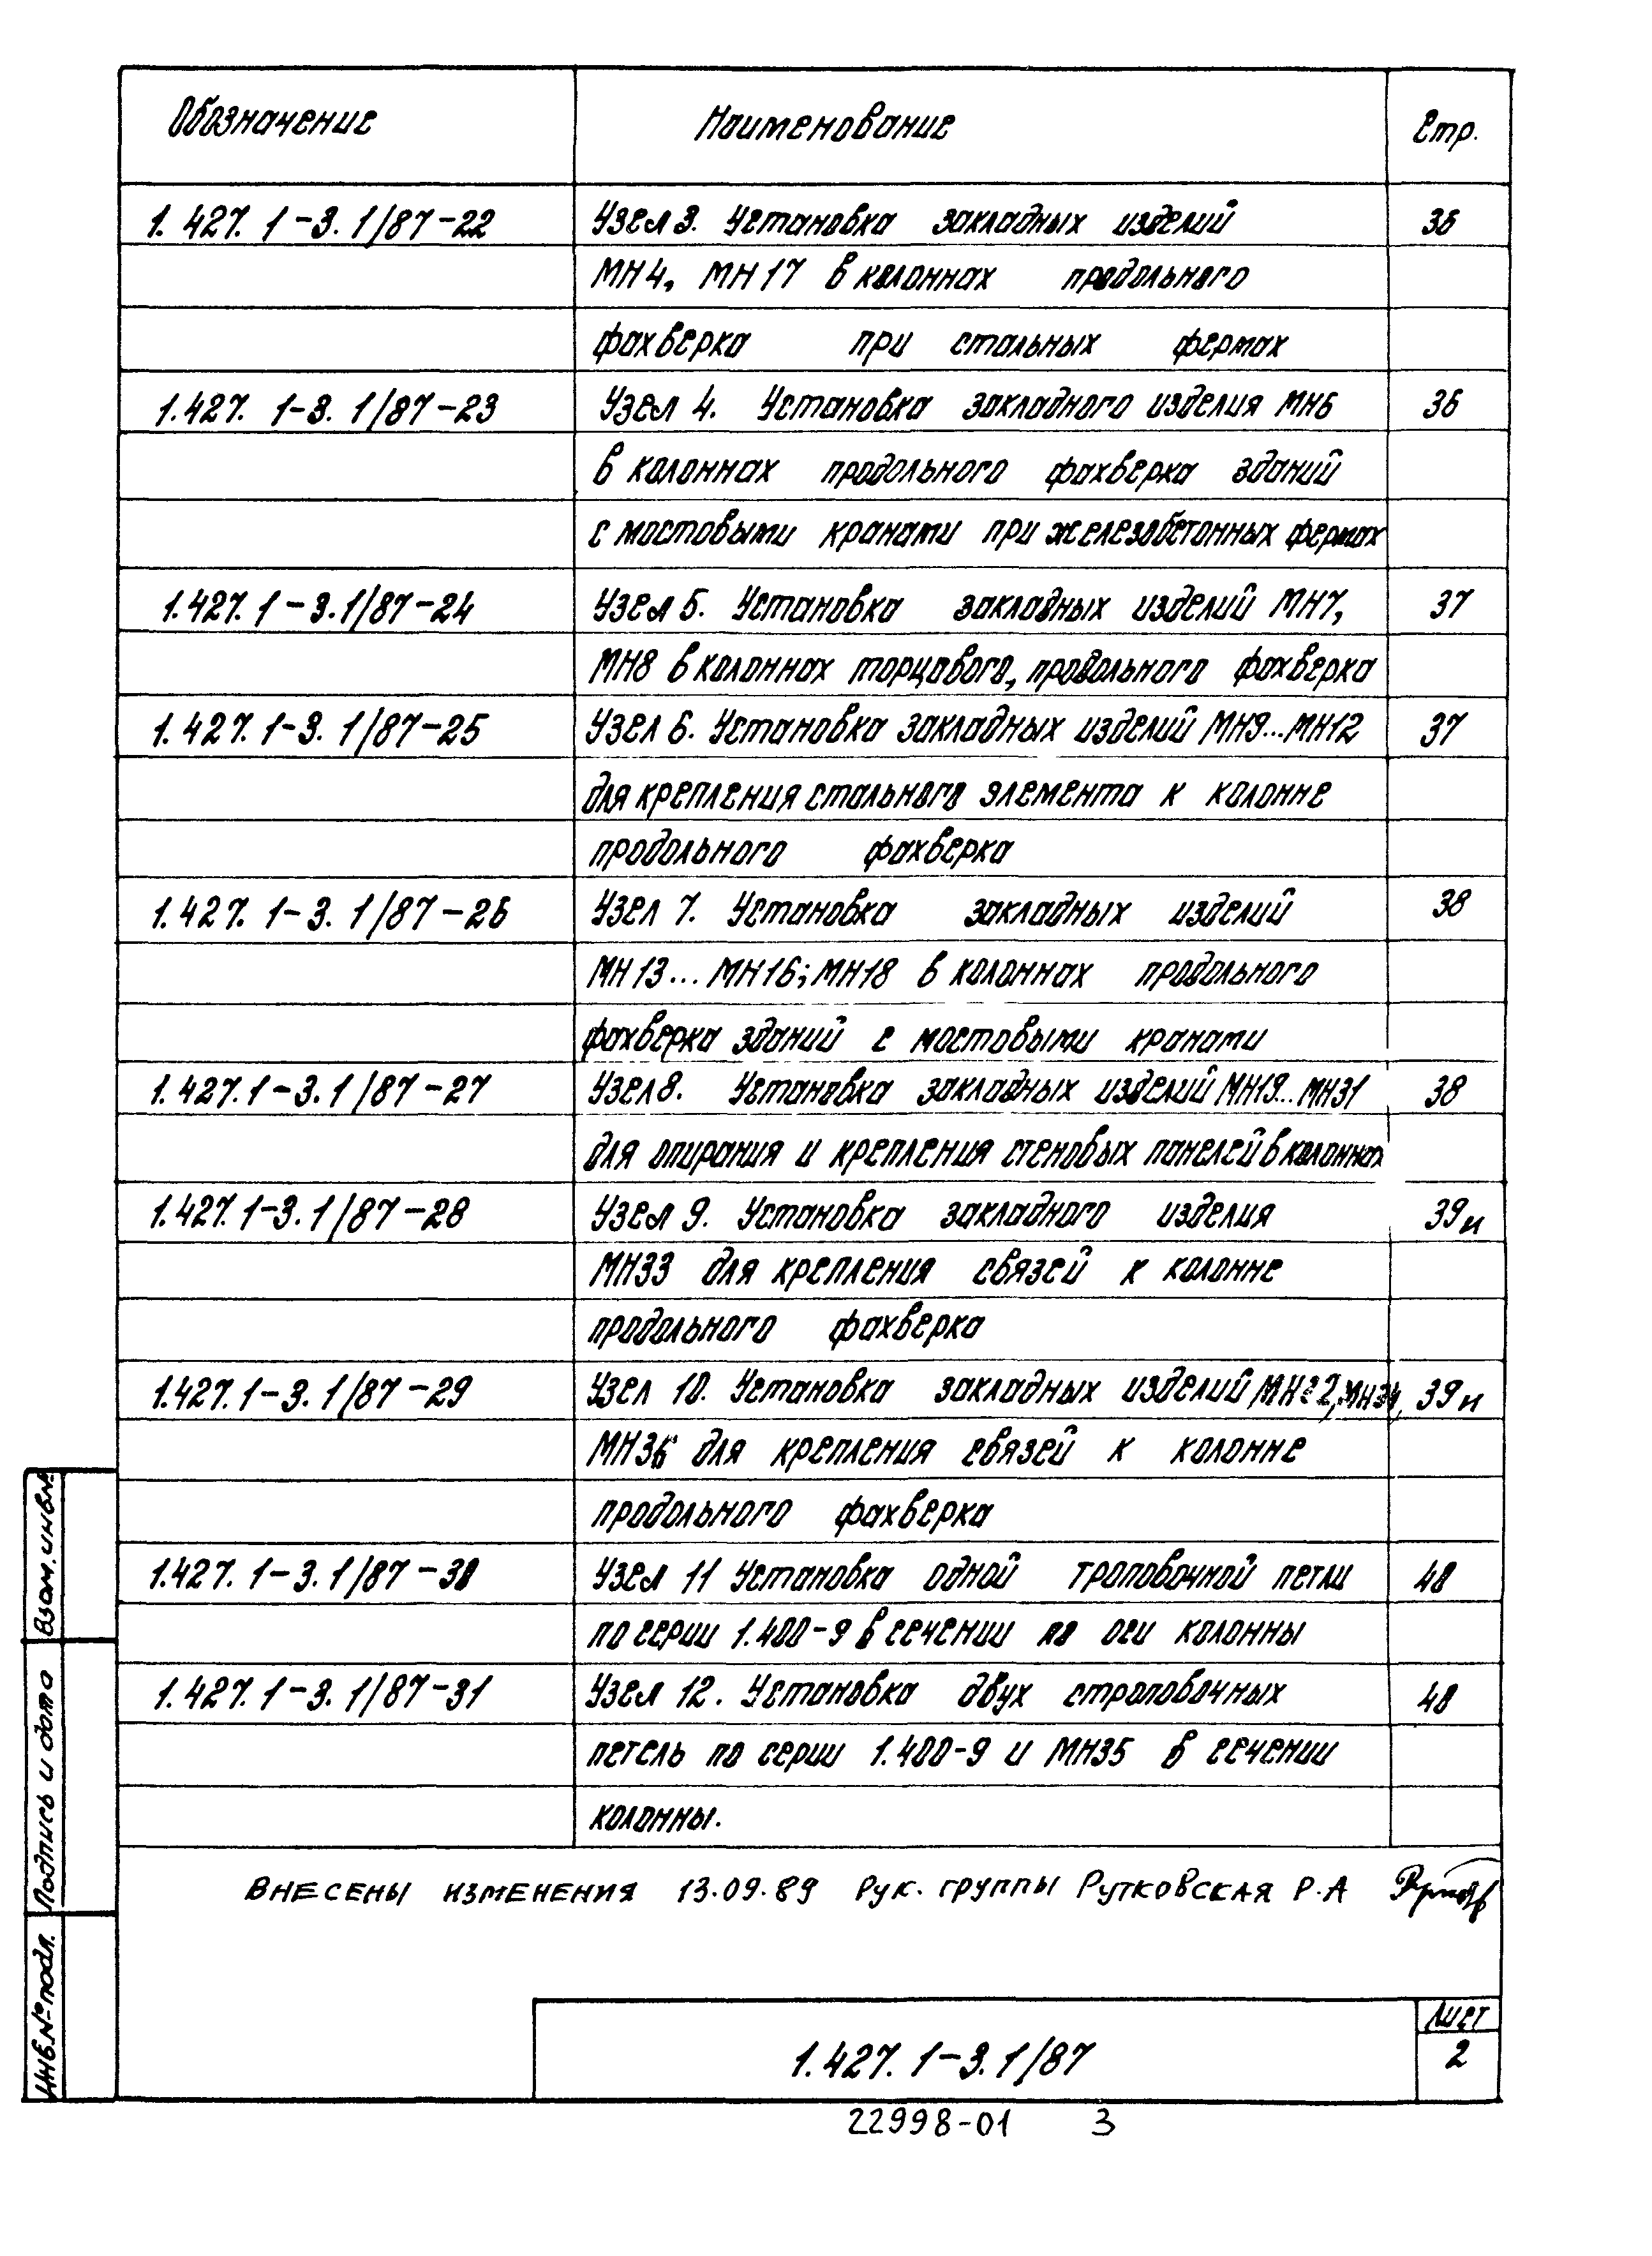 Обозначение Наименование Стр.
1.427.1-3.1/87-22 Узел 3. Установка закладных изделий 36
МН4, МН17 в колоннах продольного
фахверка при стальных фермах
1.427.1-3.1/87-23 Узел 4. Установка закладного изделия МН6 36
в колоннах продольного фахверка зданий
с мостовыми кранами при железобетонных фермах
1.427.1-3.1/87-24 Узел 5. Установка закладных изделий МН7, 37
МН8 в колоннах торцового, продольного фахверка
1.427.1-3.1/87-25 Узел 6. Установка закладных изделий МН9...МН12 37
для крепления стального элемента к колонне
продольного фахверка
1.427.1-3.1/87-26 Узел 7. Установка закладных изделий 38
МН13...МН16; МН18 в колоннах продольного
фахверка зданий с мостовыми кранами
1.427.1-3.1/87-27 Узел 8. Установка закладных изделий МН19...МН31 38
для опирания и крепления стеновых панелей в колоннах
1.427.1-3.1/87-28 Узел 9. Установка закладного изделия 39и
МН33 для крепления связей к колонне
продольного фахверка
1.427.1-3.1/87-29 Узел 10. Установка закладных изделий МН34, 39и
МН36 для крепления связей к колонне
продольного фахверка
1.427.1-3.1/87-30 Узел 11 Установка одной троповочной петли 40
по серии 1.400-9 в сечении по оси колонны
1.427.1-3.1/87-31 Узел 12. Установка двух строповочных 40
петель по серии 1.400-9 и МН35 в сечении
колонны.
Внесены изменения 13.09.89 Рук. группы Рутковская Р.А
Взам. инв.№
Подпись и дата
Инв.№ подл.
1.427.1-3.1/87
Лист
2
22998-01 3